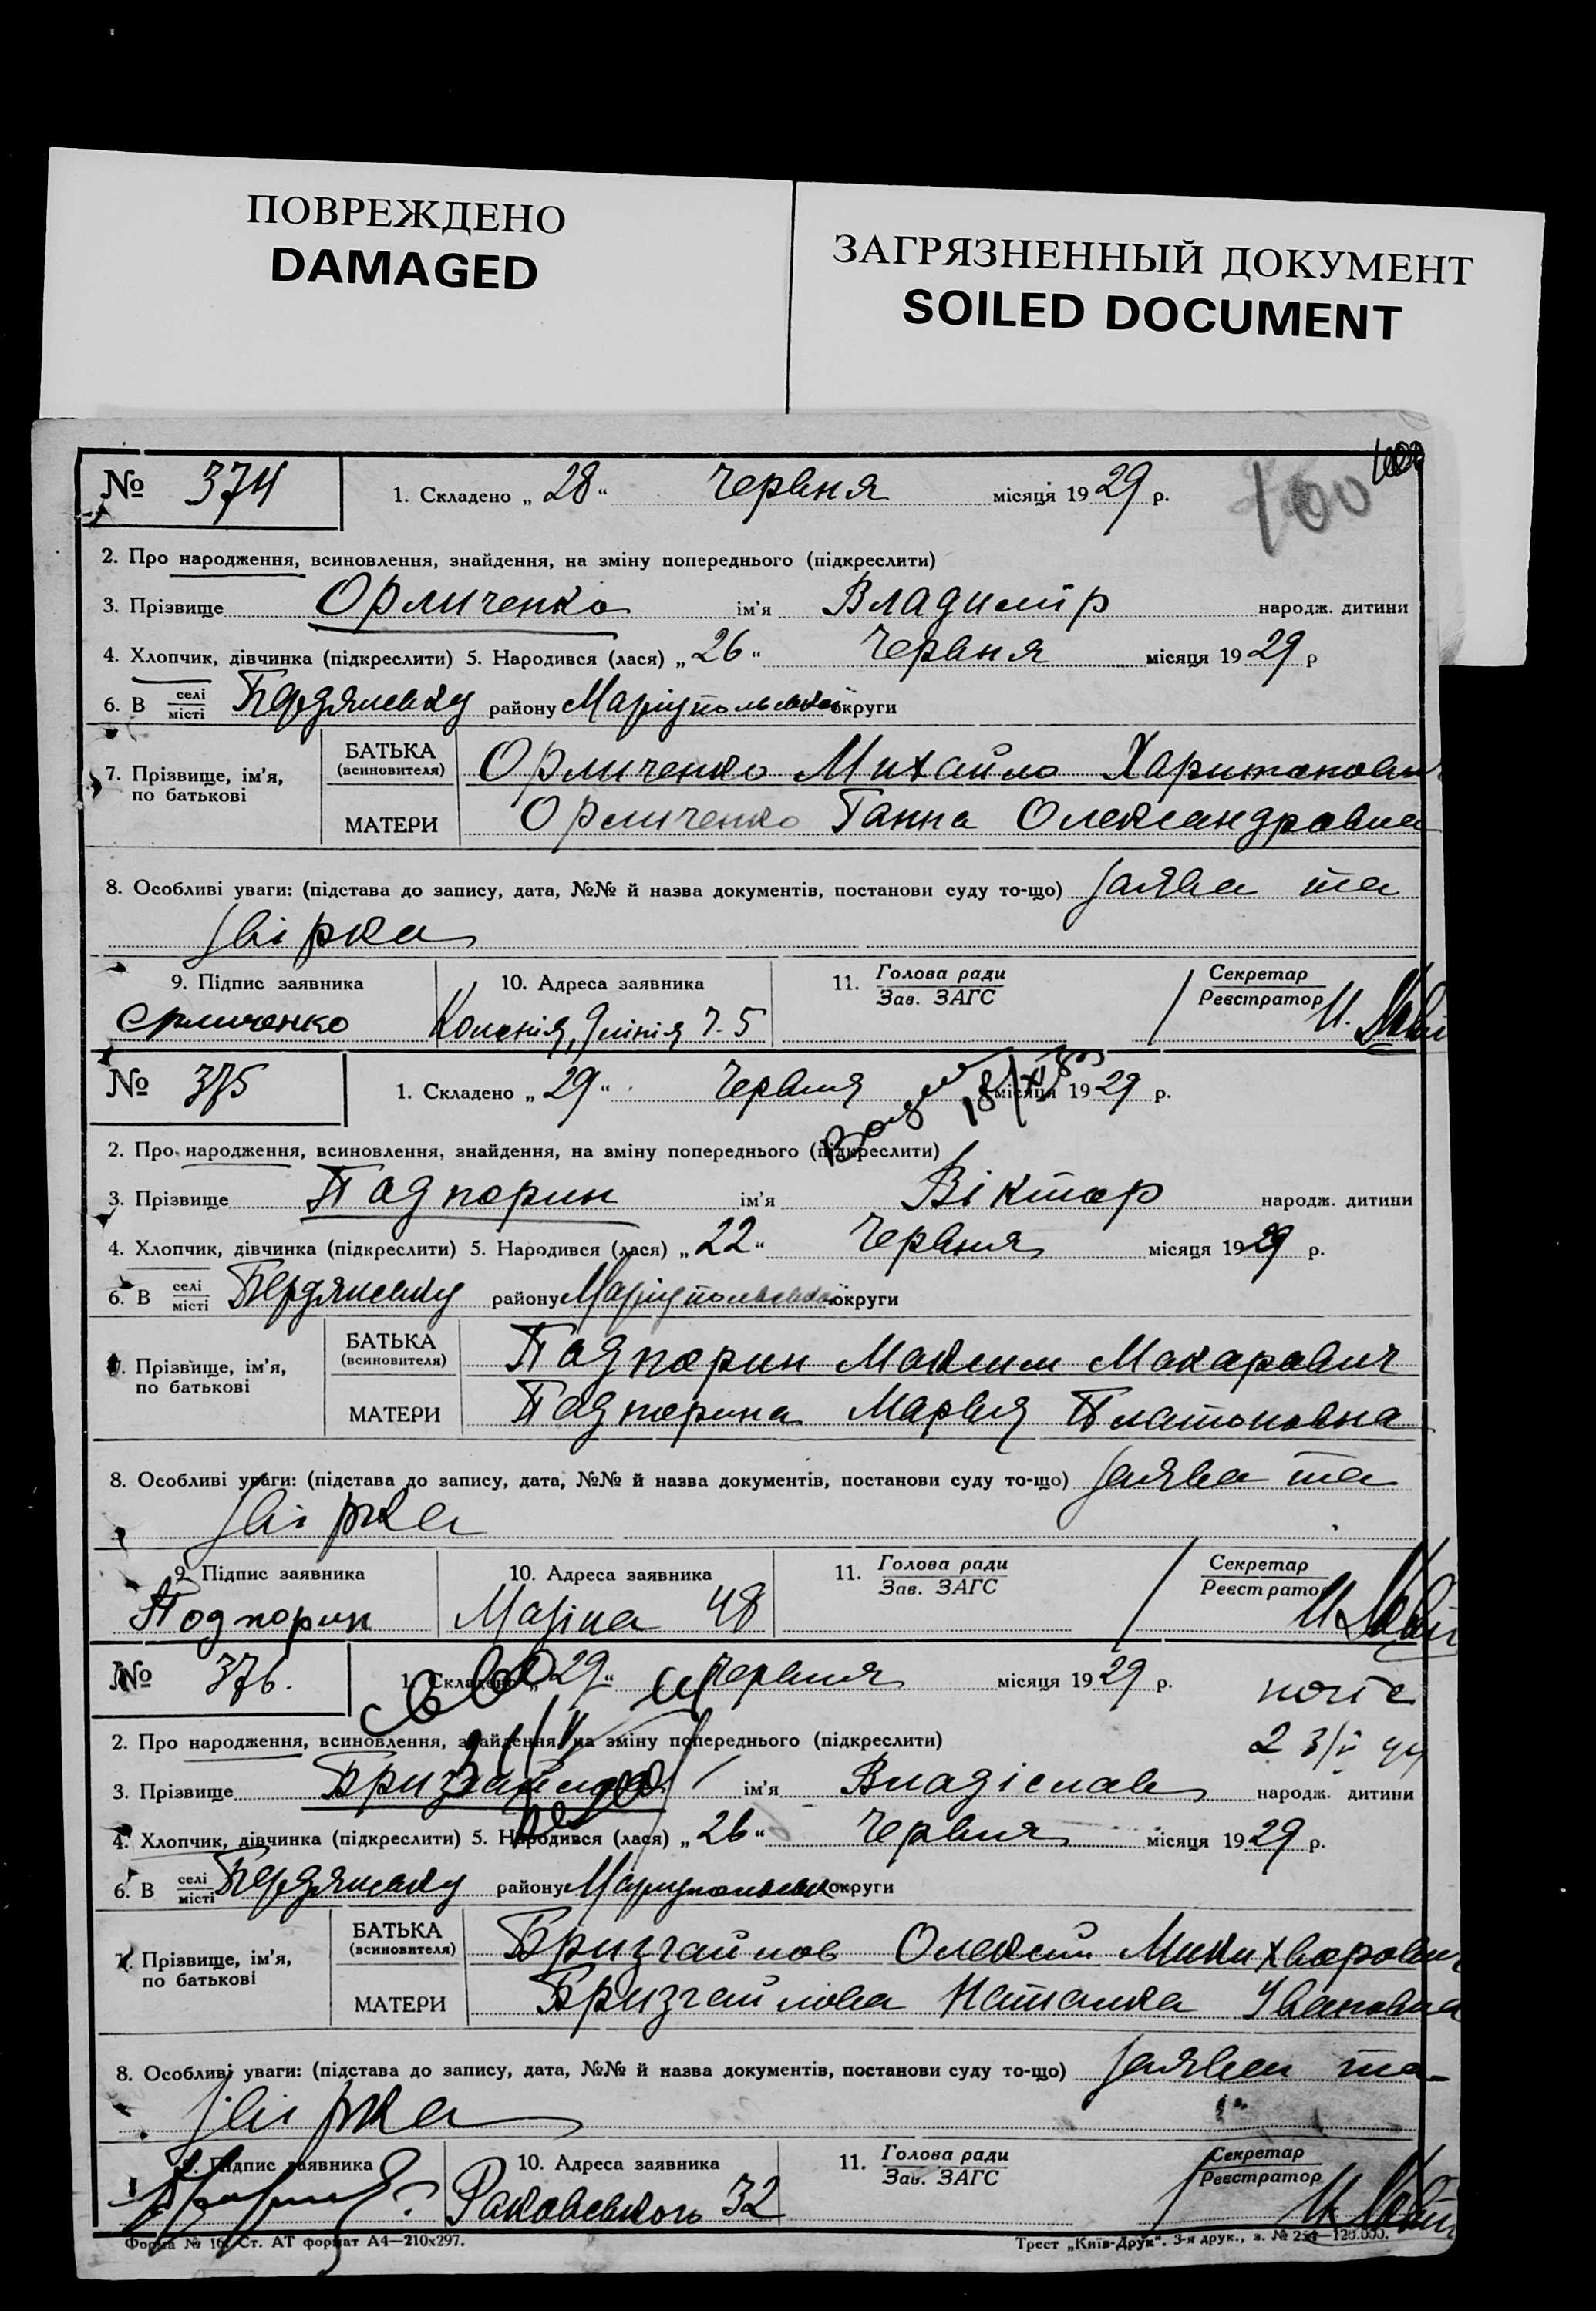 ПОВРЕЖДЕНО
DAMAGED
ЗАГРЯЗНЕННЫЙ ДОКУМЕНТ
SOILED DOCUMENT
100
№ 374
1. Складено „28“ Червня місяця 1929 р.
2. Про народження, всиновлення, знайдення, на зміну попереднього (підкреслити)
3. Прізвище Орличенко ім'я Владимір народж. дитини
4. Хлопчик, дівчинка (підкреслити) 5. Народився (лася) „26“ Червня місяця 1929 р
6. В селі місті Бердянську району Маріупольської округи
7. Прізвище, ім'я, по батькові
БАТЬКА (всиновителя) Орличенко Михайло Харитонович
МАТЕРИ Орличенко Ганна Олександровна
8. Особливі уваги: (підстава до запису, дата, №№ й назва документів, постанови суду то-що) Заява та
звірка
9. Підпис заявника
10. Адреса заявника
11. Голова ради
Зав. ЗАГС
Секретар
Реєстратор
Орличенко
Колонія, лінія 7-5
№ 375
1. Складено „29“ Червня місяця 1929 р.
2. Про народження, всиновлення, знайдення, на зміну попереднього (підкреслити)
3. Прізвище Подпорин ім'я Віктор народж. дитини
4. Хлопчик, дівчинка (підкреслити) 5. Народився (лася) „22“ Червня місяця 1929 р.
6. В селі місті Бердянську району Маріупольської округи
7. Прізвище, ім'я, по батькові
БАТЬКА (всиновителя) Подпорин Максим Макарович
МАТЕРИ Подпорина Мария Платоновна
8. Особливі уваги: (підстава до запису, дата, №№ й назва документів, постанови суду то-що) Заява та
звірка
9. Підпис заявника
10. Адреса заявника
11. Голова ради
Зав. ЗАГС
Секретар
Реєстратор
Подпорин
48
№ 376.
1. Складено „29“ Червня місяця 1929 р.
2. Про народження, всиновлення, знайдення, на зміну попереднього (підкреслити)
3. Прізвище Бризгайлов ім'я Владіслав народж. дитини
4. Хлопчик, дівчинка (підкреслити) 5. Народився (лася) „26“ Червня місяця 1929 р.
6. В селі місті Бердянську району Маріупольськ округи
7. Прізвище, ім'я, по батькові
БАТЬКА (всиновителя) Бризгайлов Олексій Микихворович
МАТЕРИ Бризгайлова Наталка Ивановна
8. Особливі уваги: (підстава до запису, дата, №№ й назва документів, постанови суду то-що) Заява та
звірка
9. Підпис заявника
10. Адреса заявника
11. Голова ради
Зав. ЗАГС
Секретар
Реєстратор
Раковського 32
Форма № 16. Ст. АТ формат А4—210х297.
Трест „Київ-Друк“. 3-я друк., з. № 254—120.000.